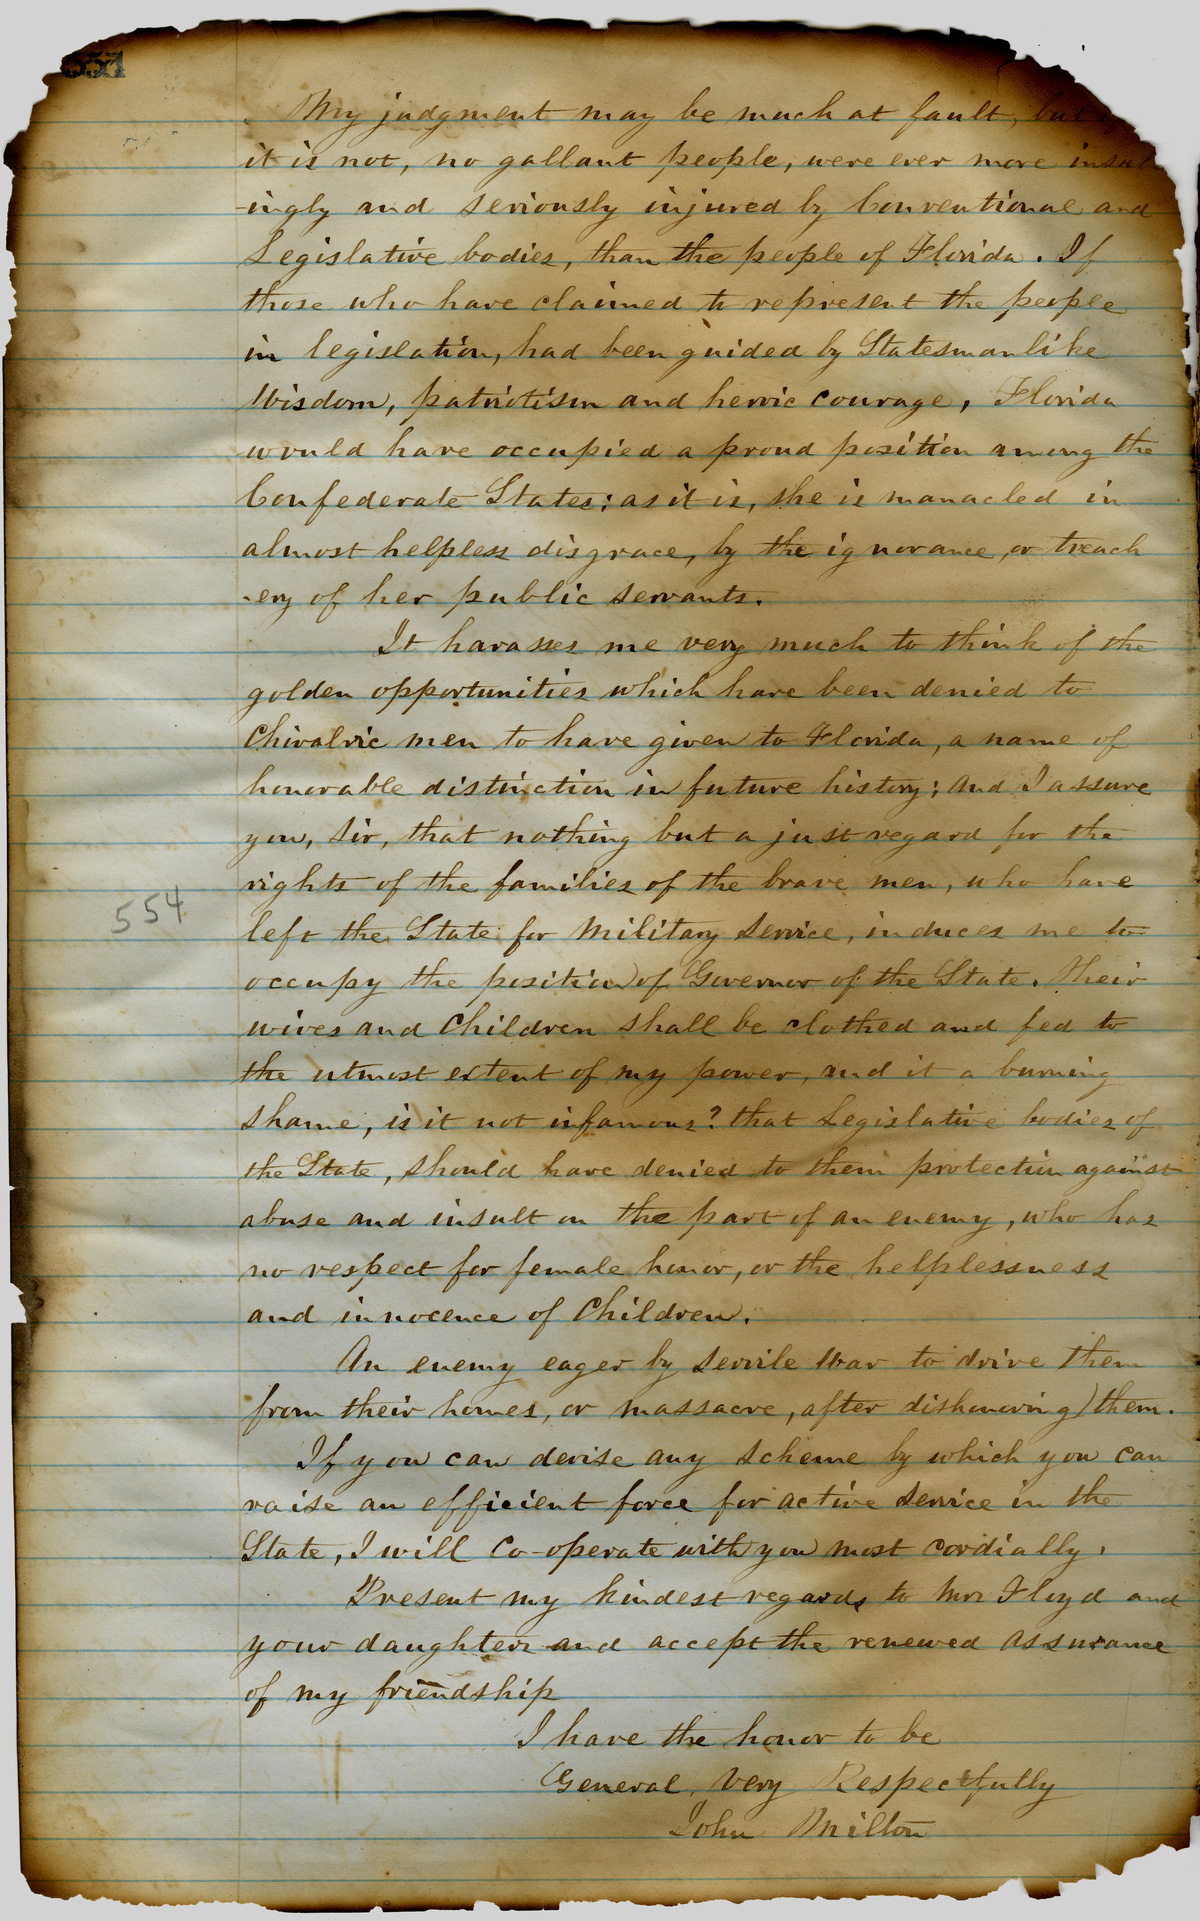 554
My judgment may be much at fault, but if
it is not, no gallant people, were ever more insult
-ingly and seriously injured by Conventional and
Legislative bodies, than the people of Florida. If
those who have claimed to represent the people
in legislation, had been guided by Statesmanlike
Wisdom, patriotism and heroic courage, Florida
would have occupied a proud position among the
Confederate States; as it is, she is manacled in
almost helpless disgrace, by the ignorance, or treach
-ery of her public servants.
It harasses me very much to think of the
golden opportunities which have been denied to
Chivalric men to have given to Florida, a name of
honorable distinction in future history; and I assure
you, Sir, that nothing but a just regard for the
rights of the families of the brave men, who have
554
left the State for Military Service, induces me to
occupy the position of Governor of the State. Their
wives and Children shall be clothed and fed to
the utmost extent of my power, and it a burning
shame, is it not infamous? that Legislative bodies of
the State, should have denied to them protection against
abuse and insult on the part of an enemy, who has
no respect for female honor, or the helplessness
and innocence of Children.
An enemy eager by Servile War to drive them
from their homes, or massacre, after dishonoring them.
If you can devise any scheme by which you can
raise an efficient force for active Service in the
State, I will Co-operate with you most cordially.
Present my kindest regards to Mrs Floyd and
your daughters and accept the renewed assurance
of my friendship
I have the honor to be
General, Very Respectfully
John Milton